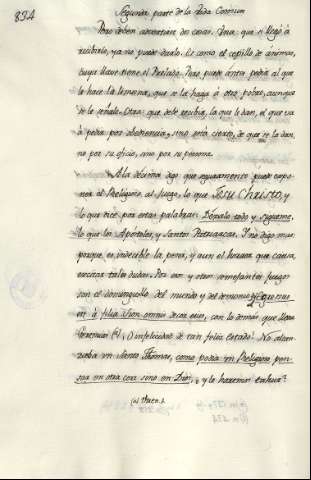 834
Segunda parte de la Vida Comun
Pero deben advertirse dos cosas. Una: que si llegó á
recibirlo, ya no puede darlo. Es como el cepillo de animas,
cuya llave tiene el Prelado. Pero puede antes pedir al que
le hace la limosna, que se la haga á otro pobre, aunque
se le señale. Otra: que debe recibir, la que le dan, el que va
á pedir por obediencia, si no está cierto, de que se la dan,
no por su oficio, sino por su persona.
A la décima digo que seguramente puede
el Religioso al Juego, lo que Jesu Christo, y
lo que dice por estas palabras: Déxalo todo y sigueme,
lo que los Apóstoles, y Santos Patriarcas. Y no digo mas
porque es indecible la pena, y aun el horror que causa,
excitar tales dudas. Por ese y otros semejantes juegos
son el dominguillo del mundo y del demonio. Egressus
est á filia Sion omnis decor eius, con lo demás que llora
Geremias (a). O infelicidad de tan feliz estado! No alcan-
zaba un Santo Thomas, como podia un Religioso pen-
sar en otra cosa sino en Dios, y le haremos tahur?
(a) Thren. 1.